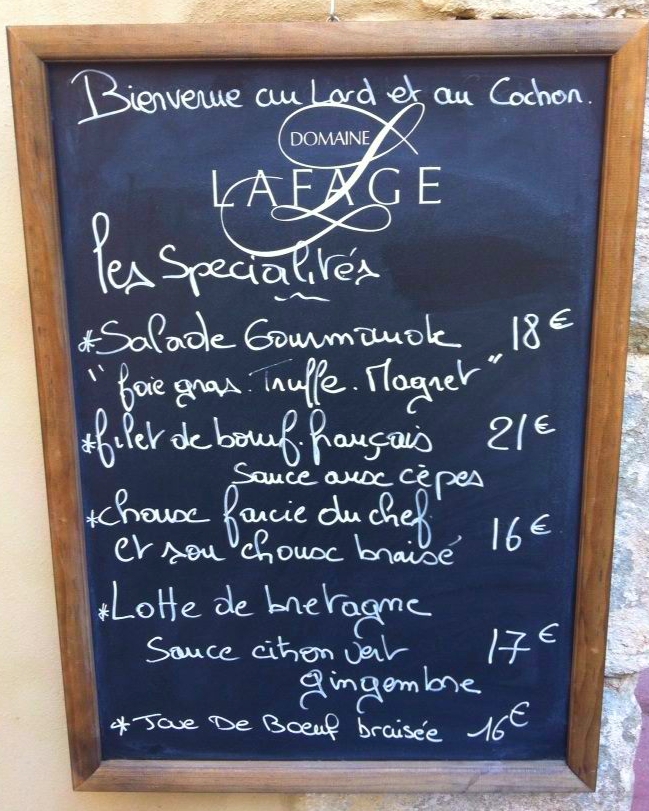 Bienvenue au Lard et au Cochon.
DOMAINE
LAFAGE
les Specialités
*Salade Gourmande 18€
"foie gras. Truffe. Magret"
*filet de bœuf. français 21€
Sauce aux cèpes
*choux farcie du chef
et son choux braisé 16€
*Lotte de bretagne
Sauce citron vert 17€
gingembre
*Joue De Boeuf braisée 16€